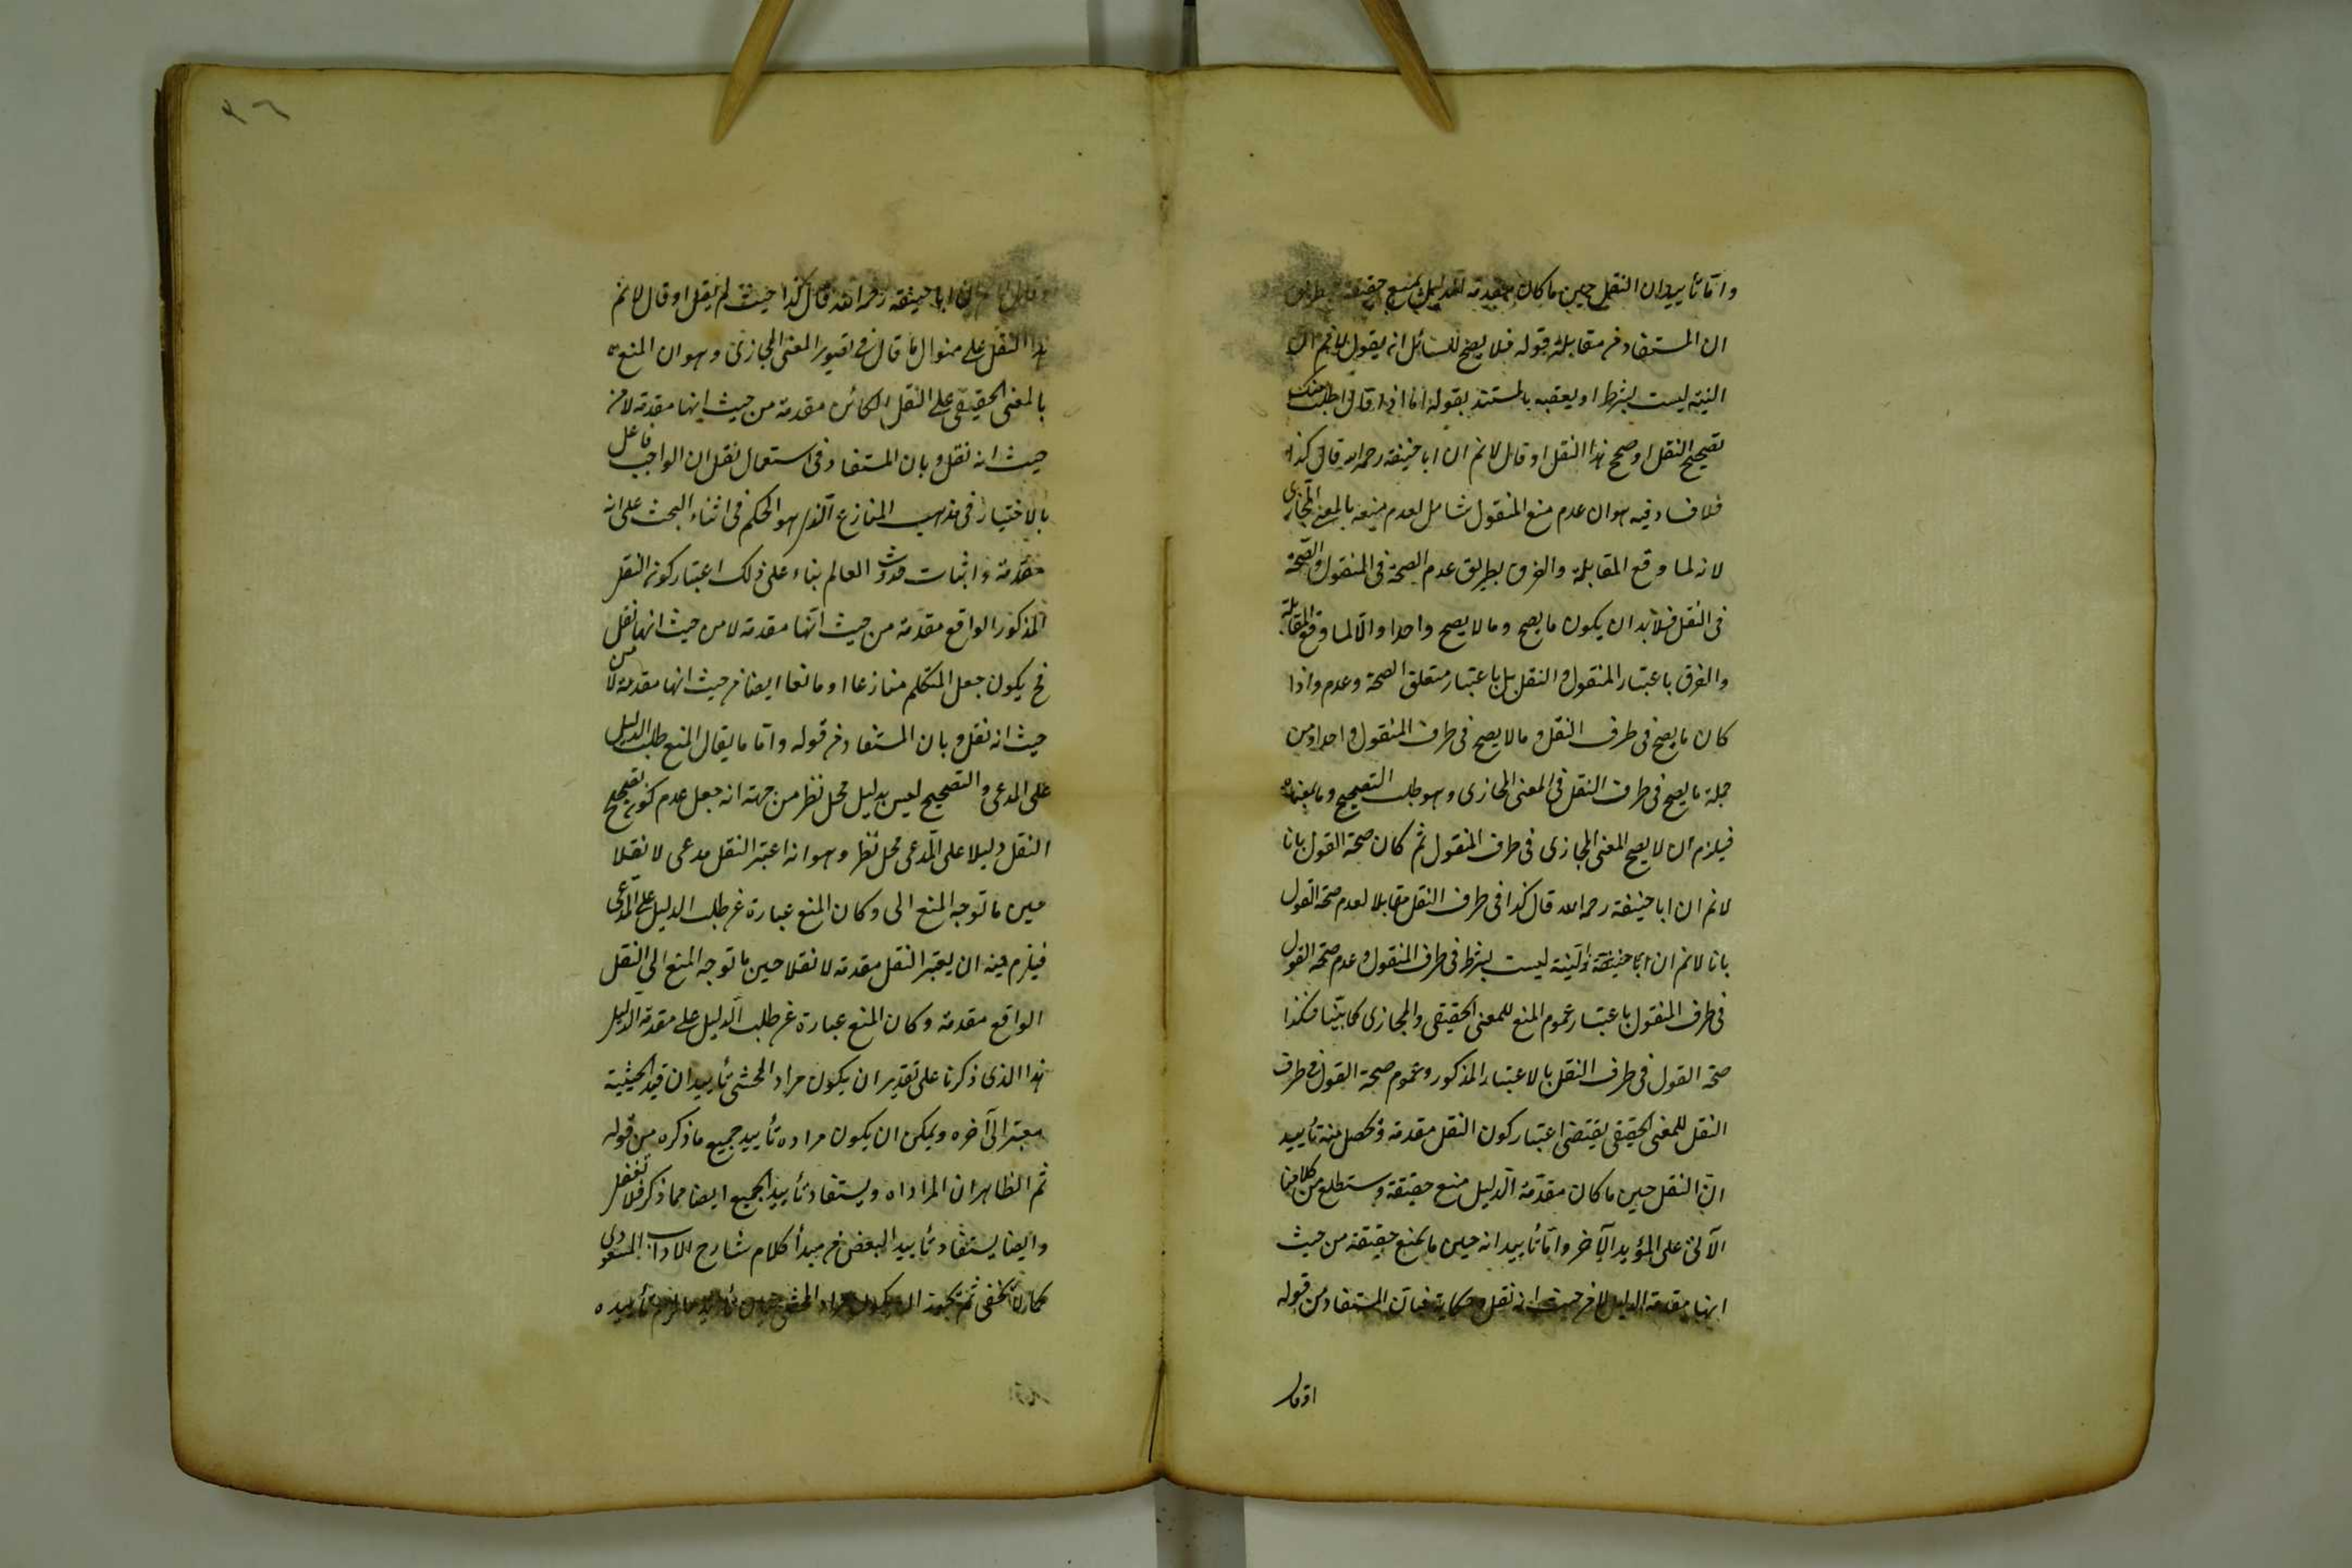 واما تأييد ان النقل حين ما كان مقدمة الدليل يمنع حقيقة
ان المستفاد من مقابلة قوله فلا يصح للسائل ان يقول لا نم ان
النية ليست بشرط او يعقبه بالمستند بقوله اما اذا قال اطلب منك
تصحيح النقل او صحح هذا النقل او قال لا نم ان ابا حنيفة رحمه الله قال كذا
فلا فساد فيه هو ان عدم منع المنقول شامل لعدم منعه بالمعنى المجازى
لانه لما وقع المقابلة والفرق بطريق عدم الصحة فى المنقول والصحة
فى النقل فلابد ان يكون ما يصح وما لا يصح واحدا والا لما وقع المقابلة
والفرق باعتبار المنقول والنقل بل باعتبار متعلق الصحة وعدم واذا
كان ما يصح فى طرف النقل وما لا يصح فى طرف المنقول واحدا ومن
جملة ما يصح فى طرف النقل فى المعنى المجازى وهو طلب التصحيح وما بمعناه
فيلزم ان لا يصح المعنى المجازى فى طرف المنقول ثم كان صحة القول بانا
لا نم ان ابا حنيفة رحمه الله قال كذا فى طرف النقل مقابلا لعدم صحة القول
بانا لا نم ان ابا حنيفة والنية ليست بشرط فى طرف المنقول وعدم صحة القول
فى طرف المنقول باعتبار عموم المنع للمعنى الحقيقى والمجازى كما بينا فكذا
صحة القول فى طرف النقل بالاعتبار المذكور وعموم صحة القول فى طرف
النقل للمعنى الحقيقى يقتضى اعتبار كون النقل مقدمة فحصل منه تأييد
ان النقل حين ما كان مقدمة الدليل منع حقيقة وستطلع من كلامنا
الآتى على المؤيد الآخر واما تأييد انه حين ما يمنع حقيقة من حيث
انها مقدمة الدليل لا من حيث انه نقل وحكاية فبان المستفاد من قوله
او قال
٣٦
ان ابا حنيفة رحمه الله قال كذا حيث لم يقل او قال لا نم
هذا النقل على منوال ما قال فى تصوير المعنى المجازى وهو ان المنع
بالمعنى الحقيقى على النقل الكائن مقدمة من حيث انها مقدمة لا من
حيث انه نقل وبان المستفاد فى استعمال نقل ان الواجب فاعل
بالاختيار فى مذهب المنازع الذى هو الحكم فى اثناء البحث على انه
مقدمة واثبات حدوث العالم بناء على ذلك اعتبار كونه النقل
المذكور الواقع مقدمة من حيث انها مقدمة لا من حيث انها نقل
فح يكون جعل المتكلم منازعا او مانعا ايضا من حيث انها مقدمة لا من
حيث انه نقل وبان المستفاد من قوله واما ما يقال المنع طلب الدليل
على المدعى والتصحيح ليس بدليل محل نظر من جهة انه جعل عدم كونه تصحيح
النقل دليلا على المدعى محل نظر وهو انه اعتبر النقل مدعى لا نقلا
حين ما توجه المنع الى وكان المنع عبارة عن طلب الدليل على المدعى
فيلزم منه ان يعتبر النقل مقدمة لا نقلا حين ما توجه المنع الى النقل
الواقع مقدمة وكان المنع عبارة عن طلب الدليل على مقدمة الدليل
هذا الذى ذكرنا على تقدير ان يكون مراد المحشى تأييد ان قيد الحيثية
معتبر الى آخره ويمكن ان يكون مراده تأييد جميع ما ذكره من قوله
ثم الظاهر ان المراد اه ويستفاد تأييد الجميع ايضا مما ذكر فلا تغفل
وايضا يستفاد تأييد البعض من مبدأ كلام شارح الاداب المسعودى
كما لا يخفى ثم يجوز ان يكون مراد المحشى تأييده